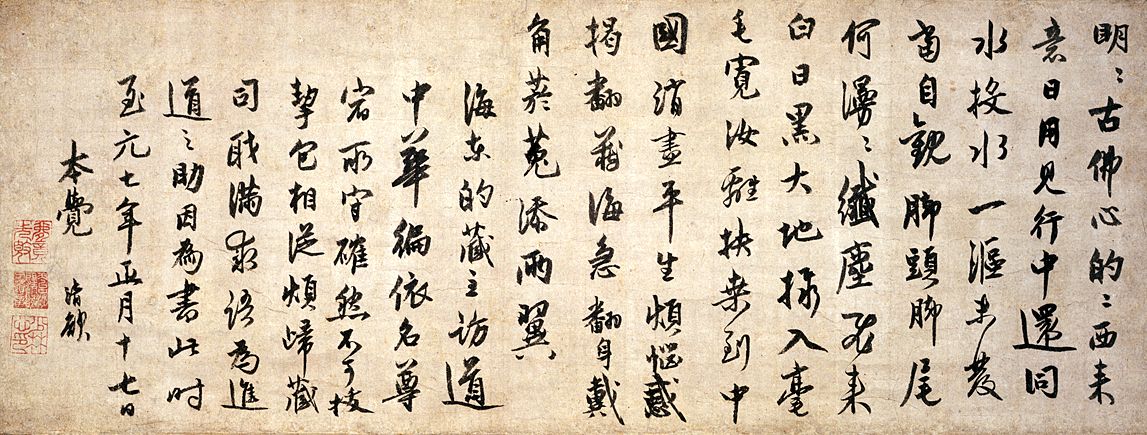 明〻古佛心的〻西来
意日用見行中還同
水投水一漚未發
當自観脚頭脚尾
何漫〻纖塵飛来
白日黒大地捺入毫
毛寛汝離扶桒到中
國消盡平生煩惱惑
掲翻蔵海急翻身戴
角菸菟添两翼
海東的蔵主訪道
中華徧依名尊
宿所守確然不可拔
挈包相從煩歸蔵
司職満求語為進
道之助因為書此时
至元七年正月十七日
本覺 清欲